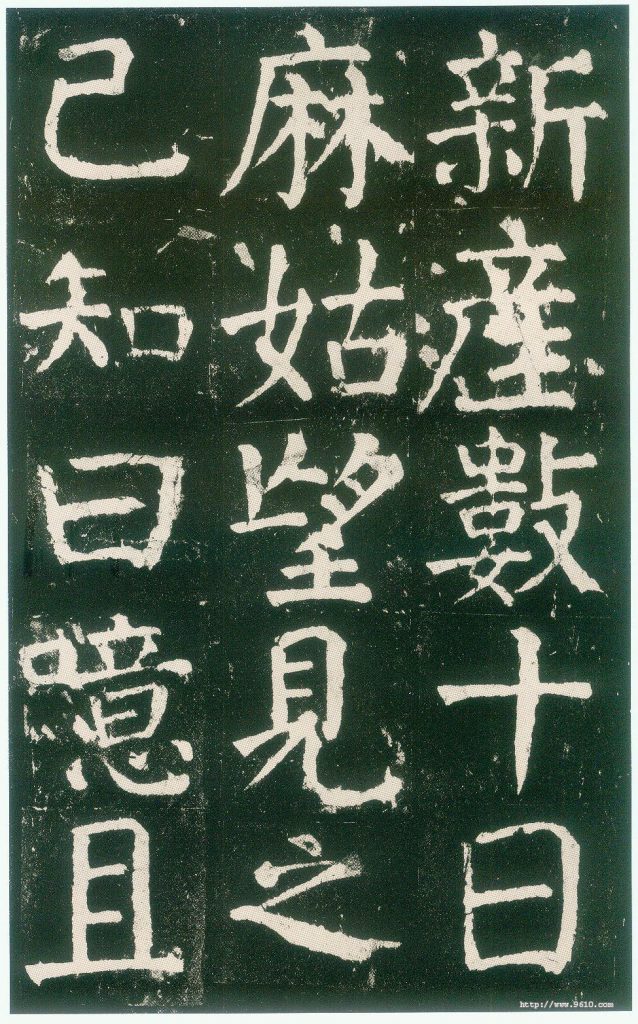 新產數十日
麻姑望見之
已知曰噫且
http://www.9610.com